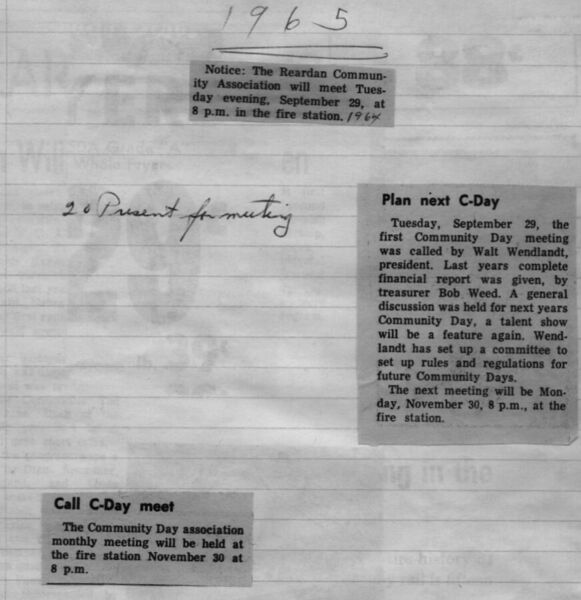 1965
Notice: The Reardan Commun-
ity Association will meet Tues-
day evening, September 29, at
8 p.m. in the fire station. 1964
20 Present for meeting
Plan next C-Day
Tuesday, September 29, the
first Community Day meeting
was called by Walt Wendlandt,
president. Last years complete
financial report was given, by
treasurer Bob Weed. A general
discussion was held for next years
Community Day, a talent show
will be a feature again. Wend-
landt has set up a committee to
set up rules and regulations for
future Community Days.
The next meeting will be Mon-
day, November 30, 8 p.m., at the
fire station.
Call C-Day meet
The Community Day association
monthly meeting will be held at
the fire station November 30 at
8 p.m.